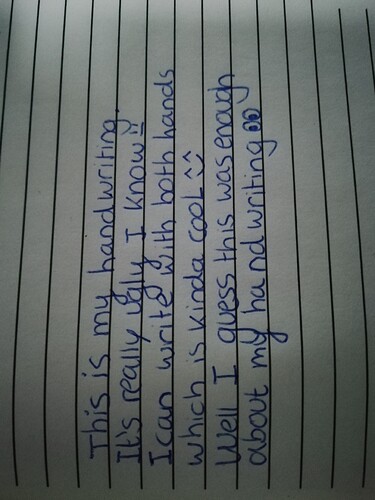 This is my handwriting.
It's really ugly I know
I can write with both hands
which is kinda cool ^^
Well I guess this was enough
about my handwriting